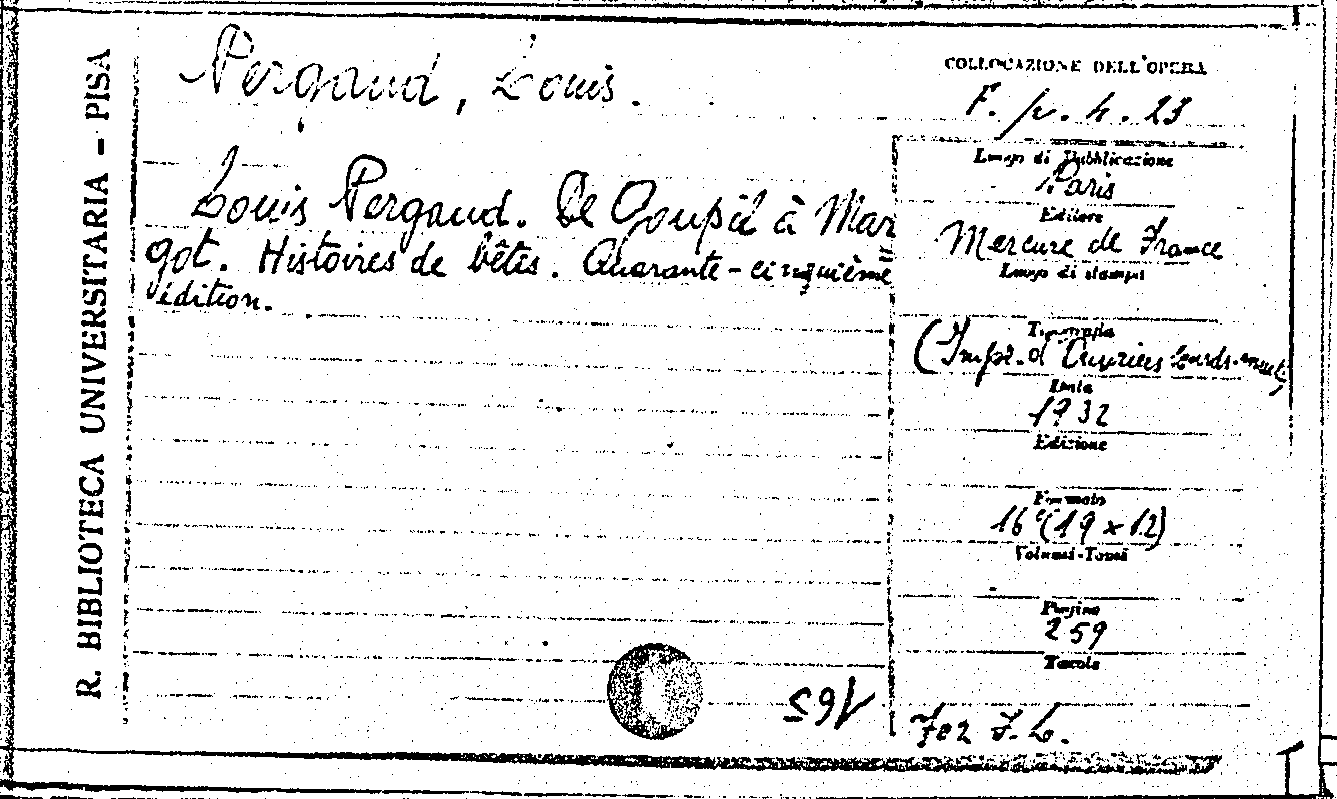 R. BIBLIOTECA UNIVERSITARIA - PISA
Pergaud, Louis.
Louis Pergaud. De Goupil à Mar
got. Histoires de bêtes. Quarante-cinquième
édition.
165
COLLOCAZIONE DELL'OPERA
F. p. 4. 23
Luogo di Pubblicazione
Paris
Editore
Mercure de France
Luogo di stampa
Tipografia
(Impr. d'Ouvriers sourds-muets)
Data
1932
Edizione
Formato
16°(19 x 12)
Volumi-Tomi
Pagine
259
Tavole